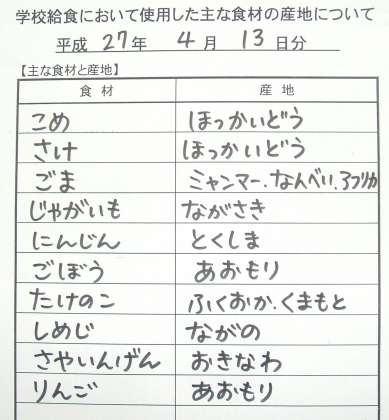 学校給食において使用した主な食材の産地について
平成 27年 4月 13日分
【主な食材と産地】
食材 産地
こめ ほっかいどう
さけ ほっかいどう
ごま ミャンマー.なんべい.アフリカ
じゃがいも ながさき
にんじん とくしま
ごぼう あおもり
たけのこ ふくおか.くまもと
しめじ ながの
さやいんげん おきなわ
りんご あおもり